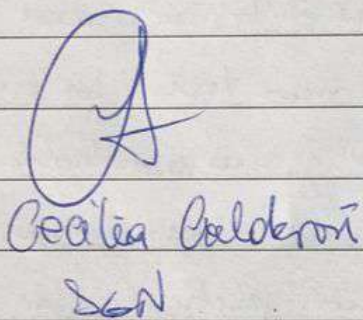 Cecilia Calderón
DGN